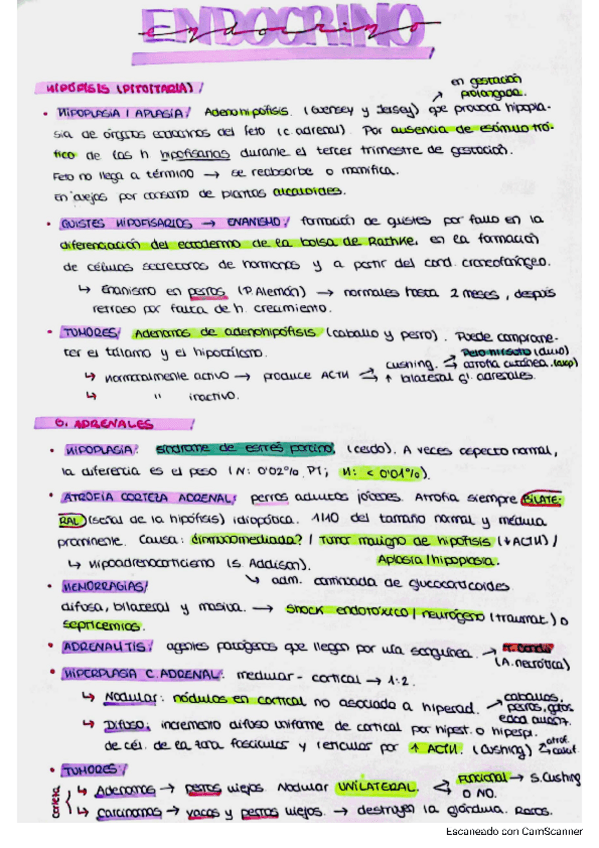 ENDOCRINO
endocrino
HIPÓFISIS (PITUITARIA) /
en gestación
prolongada.
• HIPOPLASIA / APLASIA / Adenohipófisis. (Guernsey y Jersey) que provoca hipopla-
sia de órganos endocrinos del feto (c. adrenal). Por ausencia de estímulo tró-
fico de las h hipofisarias durante el tercer trimestre de gestación.
Feto no llega a término → se reabsorbe o momifica.
En ovejas por consumo de plantas alcaloides.
• QUISTES HIPOFISARIOS → ENANISMO / formación de quistes por fallo en la
diferenciación del ectodermo de la bolsa de Rathke, en la formación
de células secretoras de hormonas y a partir del cond. craneofaríngeo.
↳ Enanismo en perros (P. Alemán) → normales hasta 2 meses, después
retraso por falta de h. crecimiento.
• TUMORES / Adenomas de adenohipófisis (caballo y perro). Puede comprome-
ter el tálamo y el hipotálamo.
Pelo hirsuto (duro)
cushing. atrofia cutánea.
↳ hormonalmente activo → produce ACTH ↑ bilateral gl. adrenales.
↳ " inactivo.
G. ADRENALES
• HIPOPLASIA: síndrome de estrés porcino, (cerdo). A veces aspecto normal,
la diferencia es el peso (N: 0'02% PV; H: < 0'01%).
• ATROFIA CORTEZA ADRENAL: perros adultos jóvenes. Atrofia siempre BILATE-
RAL (señal de la hipófisis) idiopática. 1/10 del tamaño normal y médula
prominente. Causa: ¿inmunomediada? / Tumor maligno de hipófisis (↓ACTH) /
↳ Hipoadrenocorticismo (S. Addison). Aplasia / hipoplasia.
↳ adm. continuada de glucocorticoides
• HEMORRAGIAS /
difusa, bilateral y masiva. → shock endotóxico / neurógeno (traumat.) o
septicemias.
• ADRENALITIS / agentes patógenos que llegan por vía sanguínea. →
(A. necrótica)
• HIPERPLASIA C. ADRENAL: medular - cortical → 1:2.
↳ Nodular: nódulos en cortical no asociada a hiperad. → caballos,
perros, gatos
edad avanz.
↳ Difusa: incremento difuso uniforme de cortical por hipert. o hiperpl.
de cél. de la zona fascicular y reticular por ↑ ACTH. (Cushing)
• TUMORES /
corteza
↳ Adenomas → perros viejos. Nodular UNILATERAL. Funcional → S. Cushing
O NO.
↳ Carcinomas → vacas y perros viejos. → destruyen la glándula. Raros.
Escaneado con CamScanner